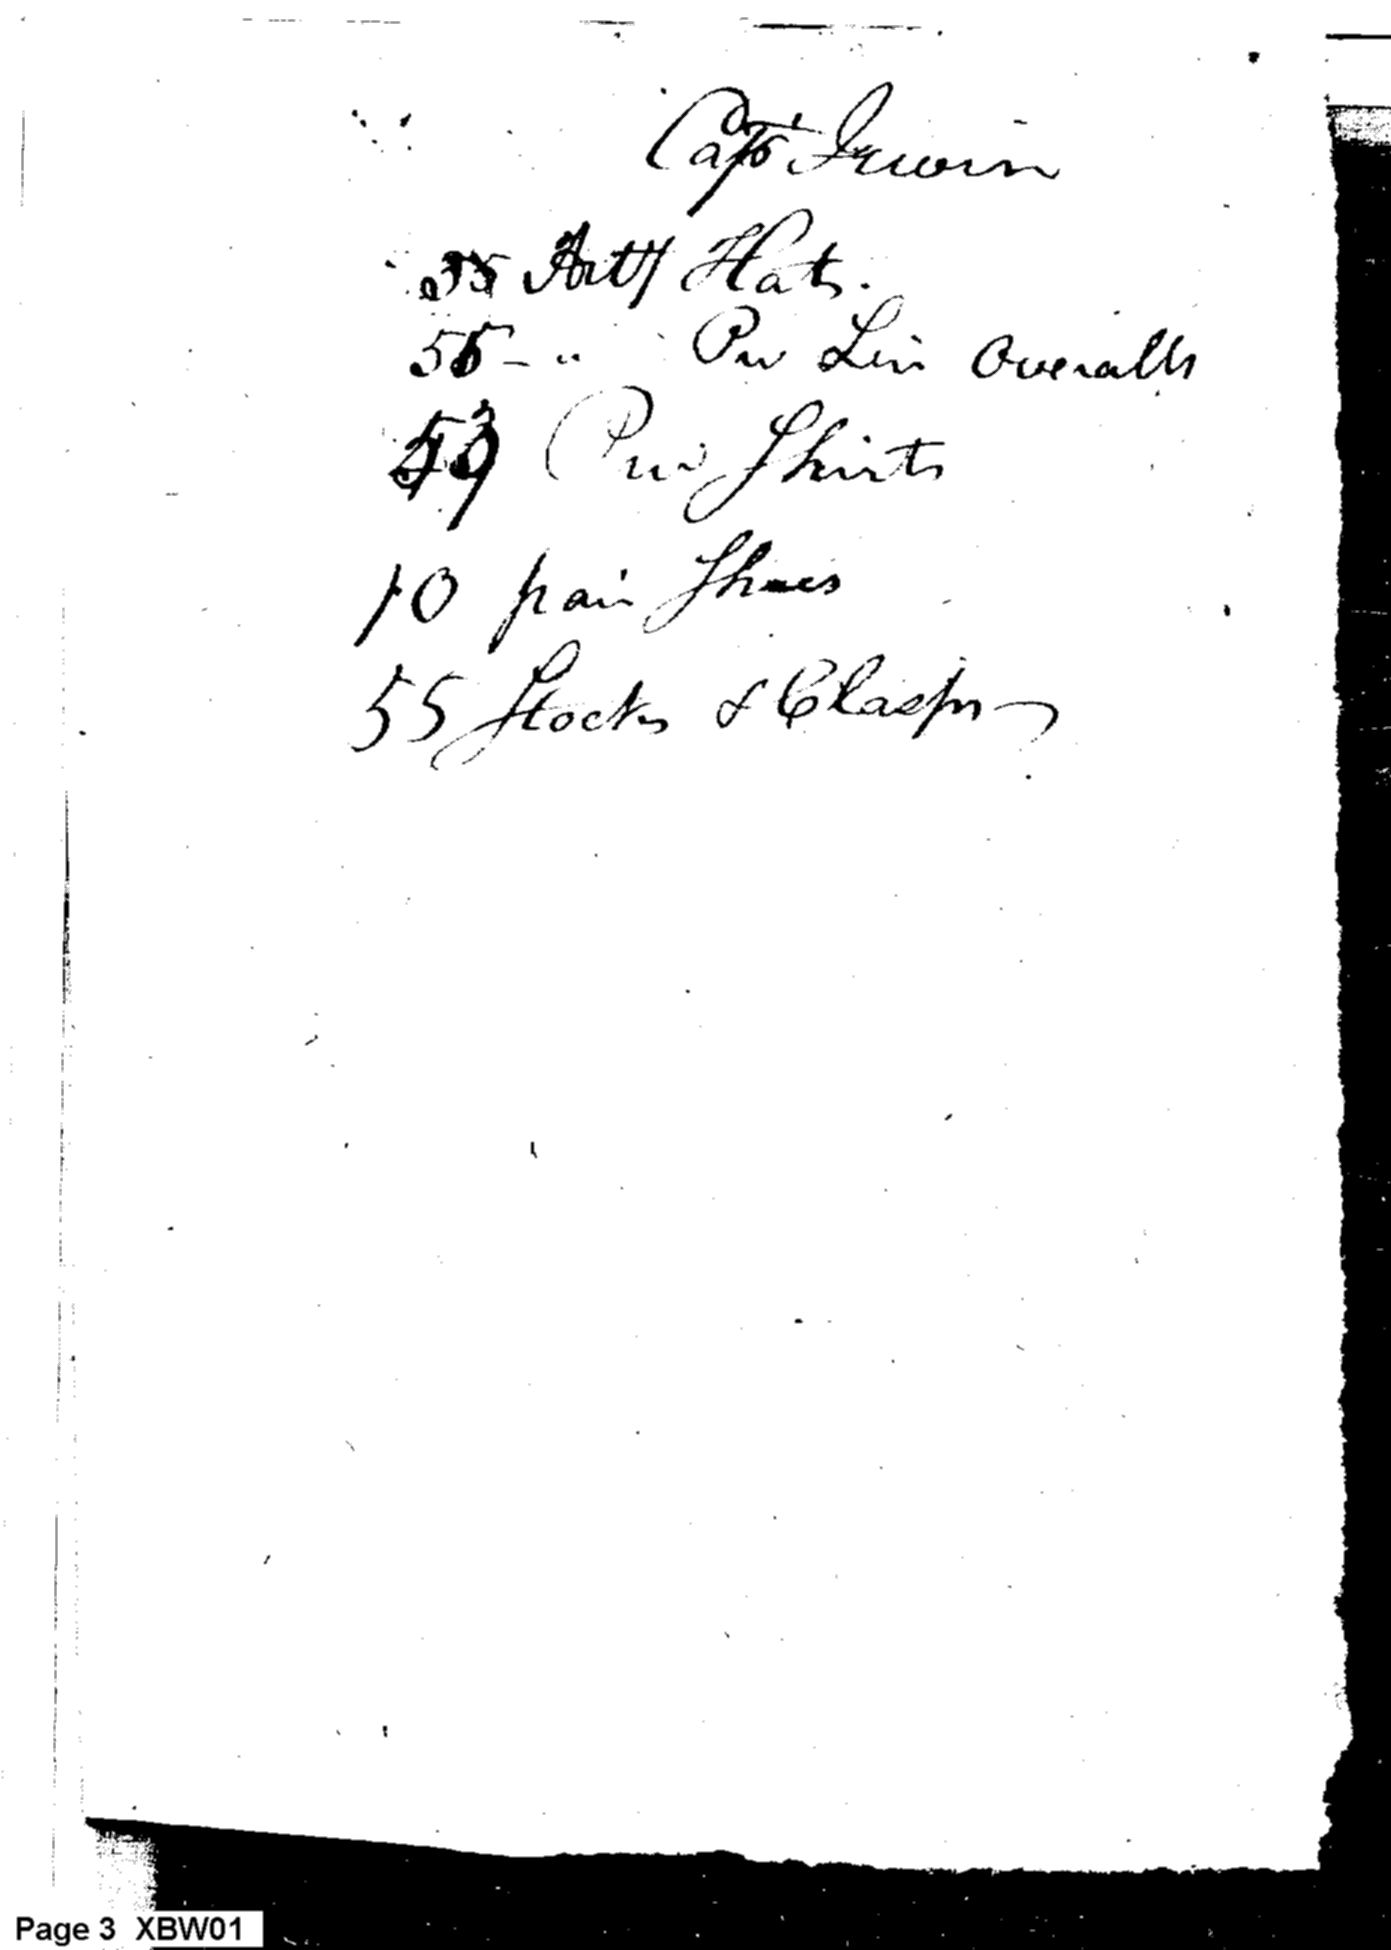 Capt Irwin
55 Arty Hats.
55 - " Pri Lin Overalls
Pri Shirts
10 pair Shoes
55 Stocks & Clasps
Page 3 XBW01